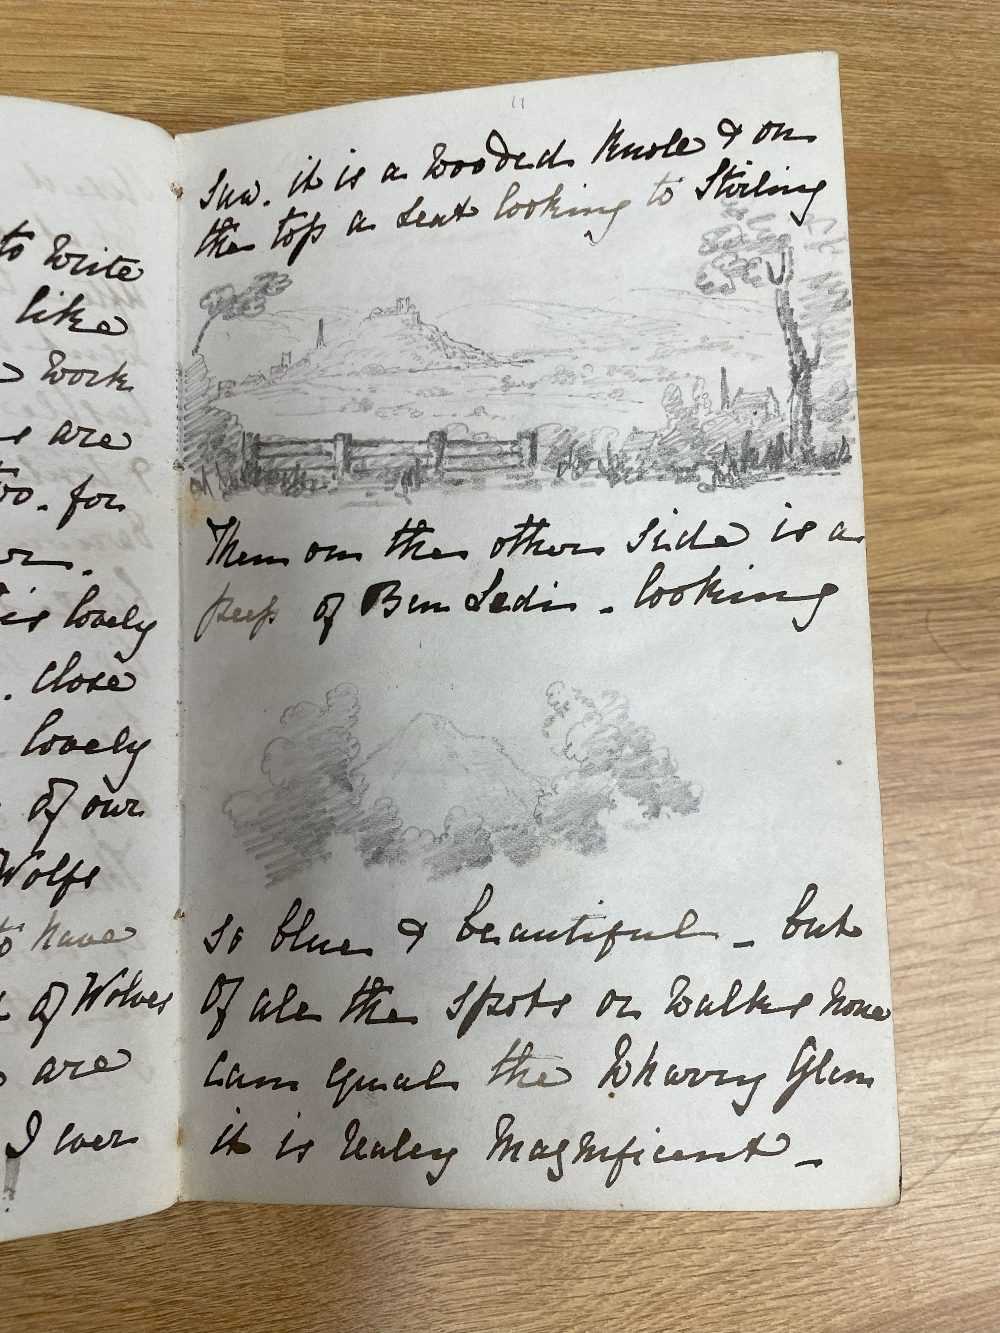 to write
like
work
are
too. for
is lovely
. close
lovely
of our
Wolfs
to have
of Wolves
are
I ever
11
Saw. it is a wooded Knole & on
the top a seat looking to Stirling
Then on the other side is a
peep of Ben Ledi - looking
so blue & beautiful - but
of all the spots or walks none
can equal the Wharry Glen
it is really Magnificent -